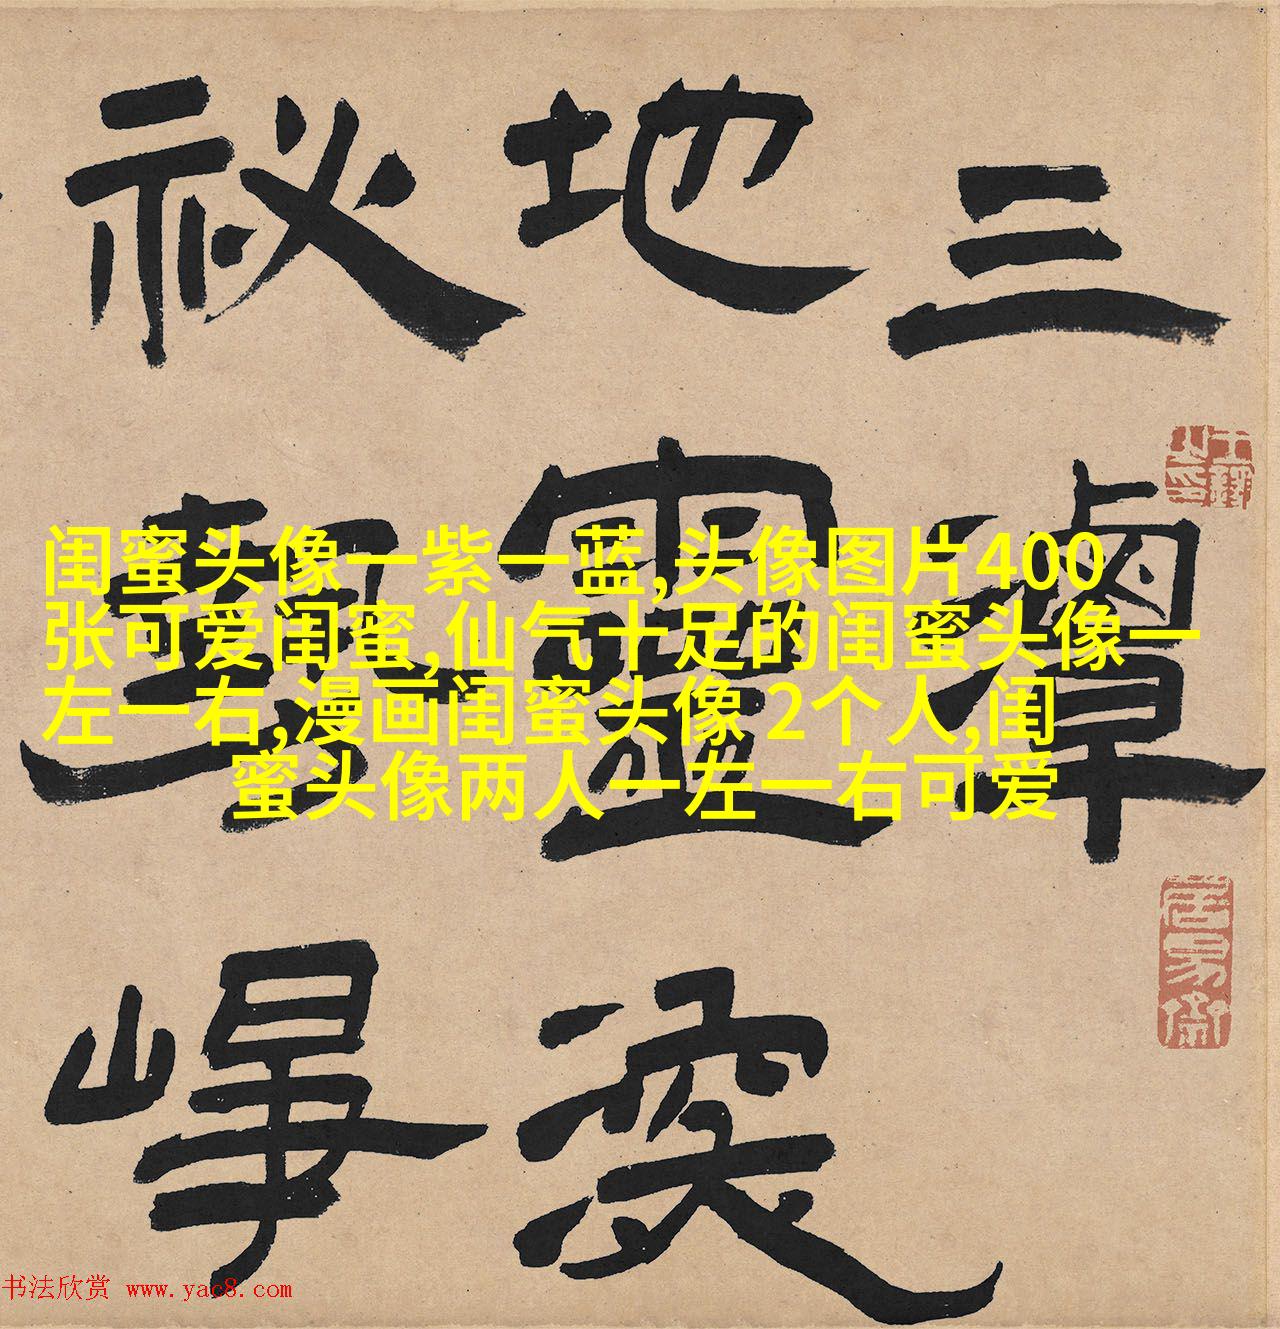 三潭
地靈奧
祕
崢
闺蜜头像一紫一蓝,头像图片400
张可爱闺蜜,仙气十足的闺蜜头像一
左一右,漫画闺蜜头像 2个人,闺
蜜头像两人一左一右可爱
书法欣赏 www.yac8.com